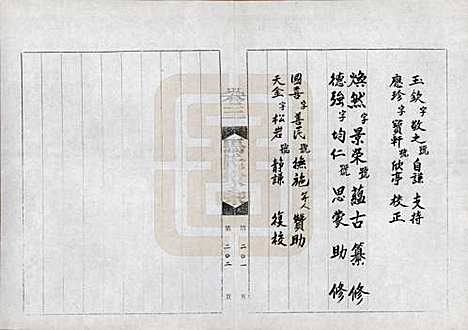 玉欽字敬之號自謙 支持
應珍字賢軒號欣亭 校正
煥然字景榮號蘊古 纂修
德強字均仁號思蒙 助修
國喜字善民號撫施 等人贊助
天金字松岩號靜謙 復校
卷三
第二〇一
第二〇二頁